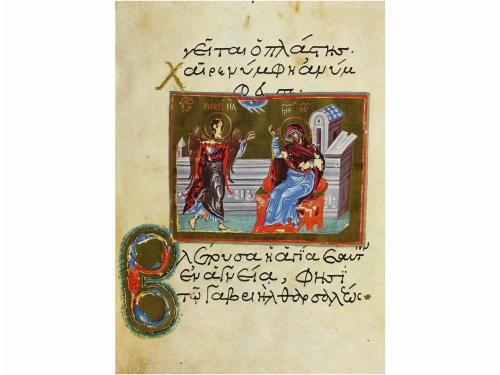 γεῖται ὁ πλάστης·
Χαῖρε νύμφη ἀνύμ
φευτε·
Βλέπουσα ἡ ἁγία ἑαυτὴν
ἐν ἁγνεία, φησὶ
τῷ Γαβριὴλ θαρσαλέως